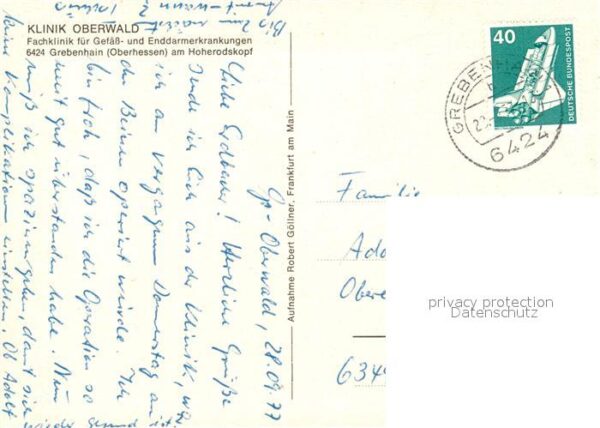 KLINIK OBERWALD
Fachklinik für Gefäß- und Enddarmerkrankungen
6424 Grebenhain (Oberhessen) am Hoherodskopf
Gr.-Oberwald, 28.09.77
Liebe! Herzliche Grüße
sende ich Euch aus der Klinik, wo
ich am vergangenen Donnerstag an
den Beinen operiert wurde. Ich
bin froh, daß ich die Operation so
gut überstanden habe. Nun
muß ich spazierengehen, damit sich
keine Komplikationen einstellen. Ob Adolf
wieder gesund ist
Bis zum
Aufnahme Robert Göllner, Frankfurt am Main
40
DEUTSCHE BUNDESPOST
GREBENHAIN
6424
Familie
Ado
Obere
634
privacy protection
Datenschutz